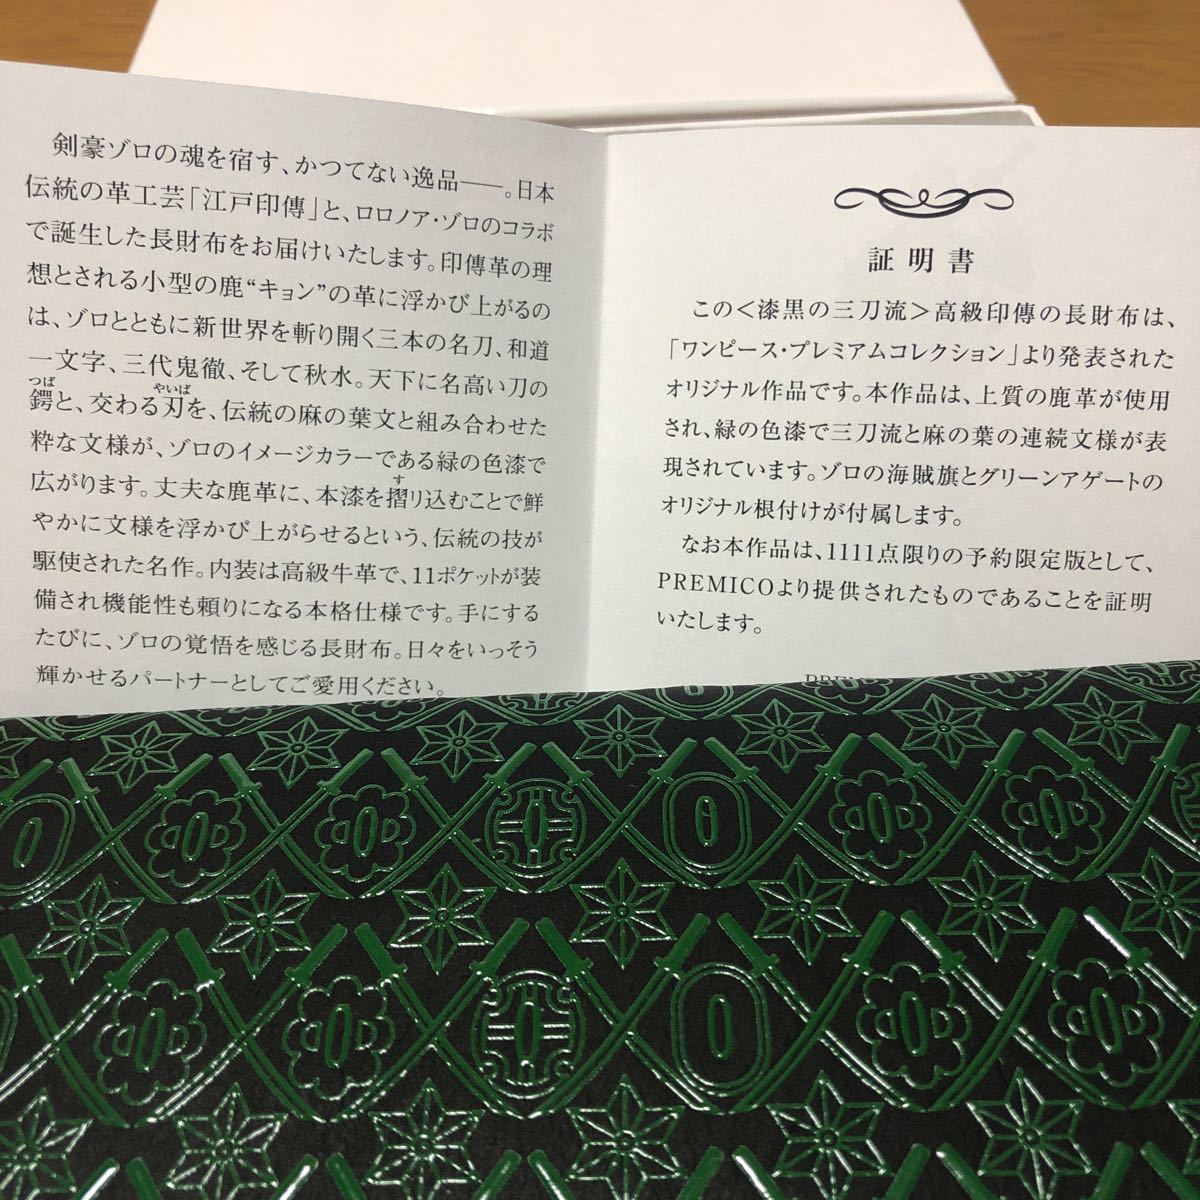 剣豪ゾロの魂を宿す、かつてない逸品――。日本
伝統の革工芸「江戸印傳」と、ロロノア・ゾロのコラボ
で誕生した長財布をお届けいたします。印傳革の理
想とされる小型の鹿“キョン”の革に浮かび上がるの
は、ゾロとともに新世界を斬り開く三本の名刀、和道
一文字、三代鬼徹、そして秋水。天下に名高い刀の
つば やいば
鍔と、交わる刃を、伝統の麻の葉文と組み合わせた
粋な文様が、ゾロのイメージカラーである緑の色漆で
す
広がります。丈夫な鹿革に、本漆を摺り込むことで鮮
やかに文様を浮かび上がらせるという、伝統の技が
駆使された名作。内装は高級牛革で、11ポケットが装
備され機能性も頼りになる本格仕様です。手にする
たびに、ゾロの覚悟を感じる長財布。日々をいっそう
輝かせるパートナーとしてご愛用ください。
証明書
この＜漆黒の三刀流＞高級印傳の長財布は、
「ワンピース・プレミアムコレクション」より発表された
オリジナル作品です。本作品は、上質の鹿革が使用
され、緑の色漆で三刀流と麻の葉の連続文様が表
現されています。ゾロの海賊旗とグリーンアゲートの
オリジナル根付けが付属します。
なお本作品は、1111点限りの予約限定版として、
PREMICOより提供されたものであることを証明
いたします。